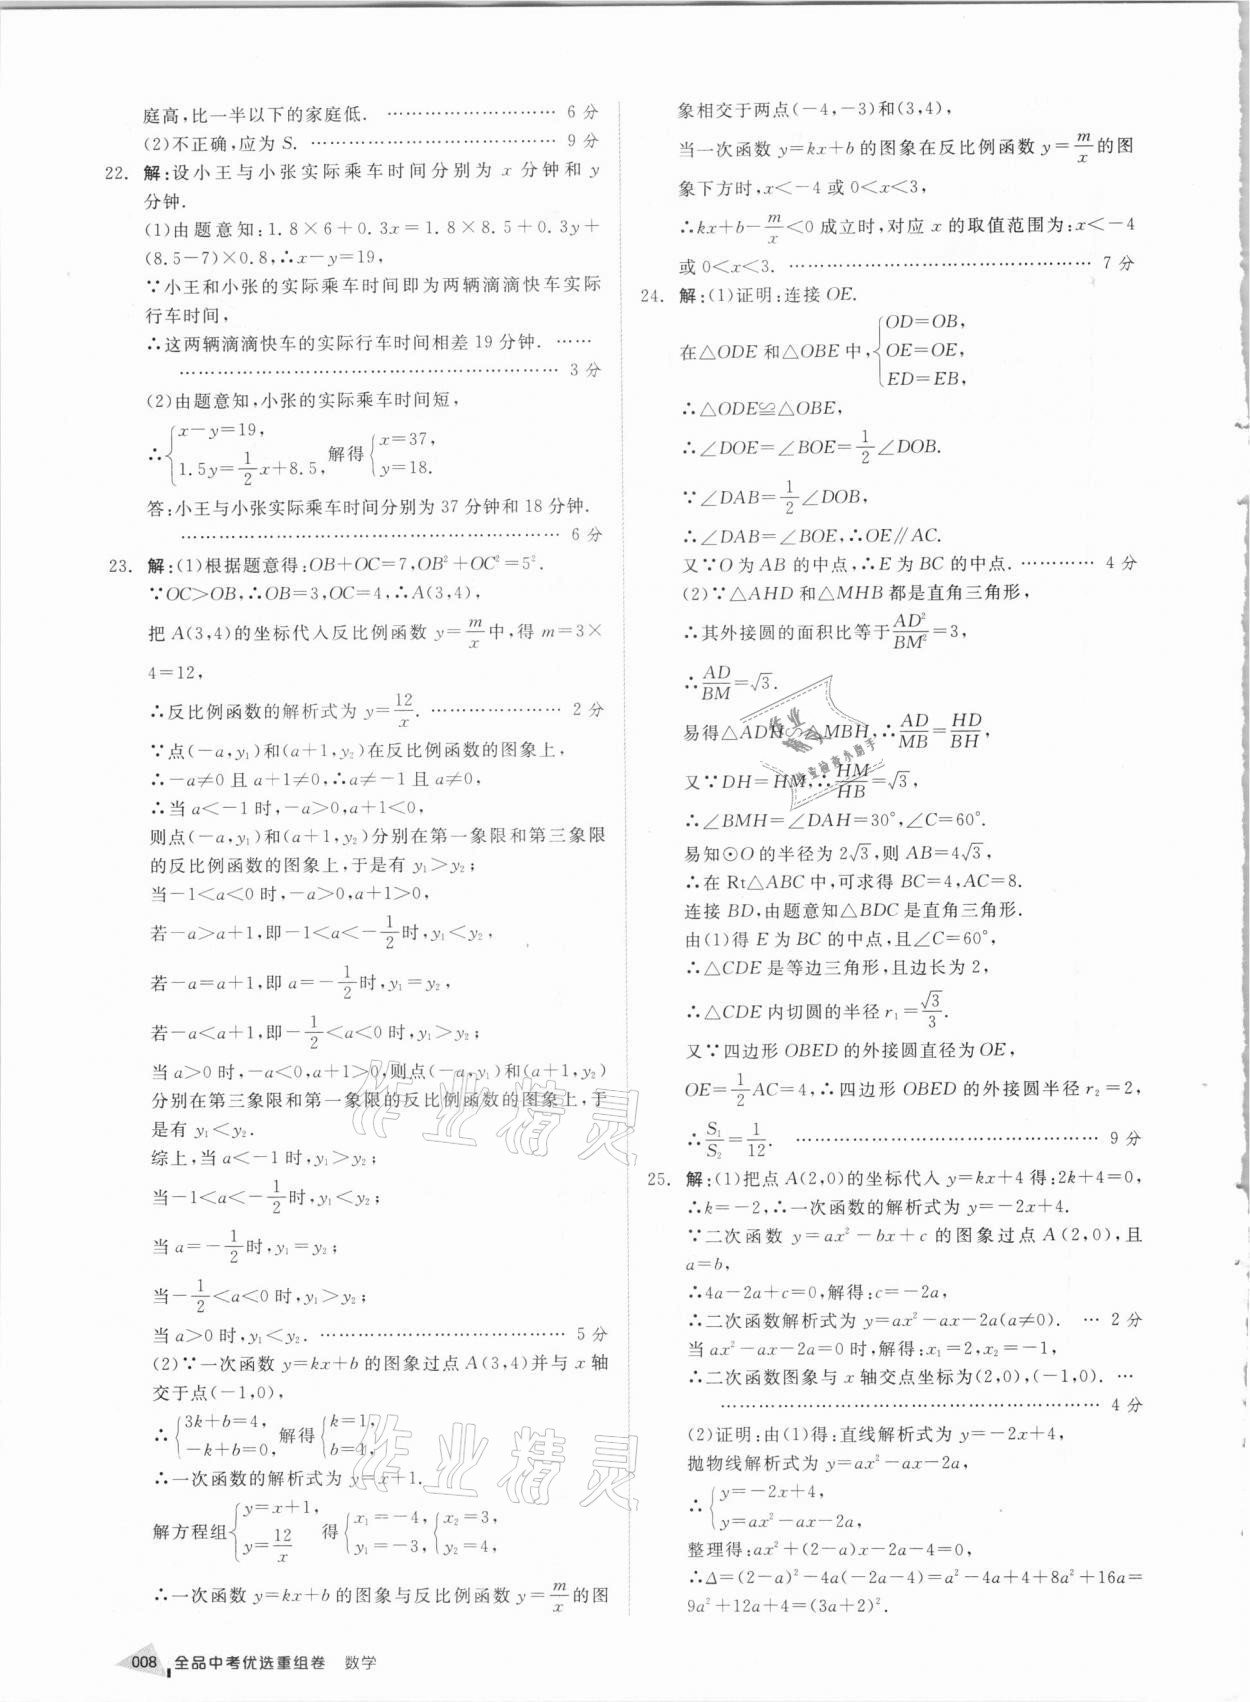 庭高,比一半以下的家庭低. ………………………… 6 分
(2)不正确,应为 S. ………………………………… 9 分
22. 解:设小王与小张实际乘车时间分别为 x 分钟和 y
分钟.
(1)由题意知:1.8×6+0.3x=1.8×8.5+0.3y+
(8.5−7)×0.8,∴x−y=19,
∵小王和小张的实际乘车时间即为两辆滴滴快车实际
行车时间,
∴这两辆滴滴快车的实际行车时间相差 19 分钟. ……
…………………………………………………… 3 分
(2)由题意知,小张的实际乘车时间短,
∴{x−y=19, 1.5y=1/2x+8.5, 解得{x=37, y=18.
答:小王与小张实际乘车时间分别为 37 分钟和 18 分钟.
…………………………………………………… 6 分
23. 解:(1)根据题意得:OB+OC=7,OB²+OC²=5².
∵OC>OB,∴OB=3,OC=4,∴A(3,4),
把 A(3,4)的坐标代入反比例函数 y=m/x中,得 m=3×
4=12,
∴反比例函数的解析式为 y=12/x. ………………… 2 分
∵点(−a,y₁)和(a+1,y₂)在反比例函数的图象上,
∴−a≠0 且 a+1≠0,∴a≠−1 且 a≠0,
∴当 a<−1 时,−a>0,a+1<0,
则点(−a,y₁)和(a+1,y₂)分别在第一象限和第三象限
的反比例函数的图象上,于是有 y₁>y₂;
当−1<a<0 时,−a>0,a+1>0,
若−a>a+1,即−1<a<−1/2时,y₁<y₂,
若−a=a+1,即 a=−1/2时,y₁=y₂,
若−a<a+1,即−1/2<a<0 时,y₁>y₂;
当 a>0 时,−a<0,a+1>0,则点(−a,y₁)和(a+1,y₂)
分别在第三象限和第一象限的反比例函数的图象上,于
是有 y₁<y₂.
综上,当 a<−1 时,y₁>y₂;
当−1<a<−1/2时,y₁<y₂;
当 a=−1/2时,y₁=y₂;
当−1/2<a<0 时,y₁>y₂;
当 a>0 时,y₁<y₂. ………………………………… 5 分
(2)∵一次函数 y=kx+b 的图象过点 A(3,4)并与 x 轴
交于点(−1,0),
∴{3k+b=4, −k+b=0, 解得{k=1, b=1,
∴一次函数的解析式为 y=x+1.
解方程组{y=x+1, y=12/x 得{x₁=−4, y₁=−3, {x₂=3, y₂=4,
∴一次函数 y=kx+b 的图象与反比例函数 y=m/x的图
008 全品中考优选重组卷 数学
象相交于两点(−4,−3)和(3,4),
当一次函数 y=kx+b 的图象在反比例函数 y=m/x的图
象下方时,x<−4 或 0<x<3,
∴kx+b−m/x<0 成立时,对应 x 的取值范围为:x<−4
或 0<x<3. ………………………………………… 7 分
24. 解:(1)证明:连接 OE.
在△ODE 和△OBE 中,{OD=OB, OE=OE, ED=EB,
∴△ODE≌△OBE,
∴∠DOE=∠BOE=1/2∠DOB.
∵∠DAB=1/2∠DOB,
∴∠DAB=∠BOE,∴OE∥AC.
又∵O 为 AB 的中点,∴E 为 BC 的中点. ………… 4 分
(2)∵△AHD 和△MHB 都是直角三角形,
∴其外接圆的面积比等于AD²/BM²=3,
∴AD/BM=√3.
易得△ADH∽△MBH,∴AD/MB=HD/BH,
又∵DH=HM,∴HM/HB=√3,
∴∠BMH=∠DAH=30°,∠C=60°.
易知⊙O 的半径为 2√3,则 AB=4√3,
∴在 Rt△ABC 中,可求得 BC=4,AC=8.
连接 BD,由题意知△BDC 是直角三角形.
由(1)得 E 为 BC 的中点,且∠C=60°,
∴△CDE 是等边三角形,且边长为 2,
∴△CDE 内切圆的半径 r₁=√3/3.
又∵四边形 OBED 的外接圆直径为 OE,
OE=1/2AC=4,∴四边形 OBED 的外接圆半径 r₂=2,
∴S₁/S₂=1/12. ………………………………………… 9 分
25. 解:(1)把点 A(2,0)的坐标代入 y=kx+4 得:2k+4=0,
∴k=−2,∴一次函数的解析式为 y=−2x+4.
∵二次函数 y=ax²−bx+c 的图象过点 A(2,0),且
a=b,
∴4a−2a+c=0,解得:c=−2a,
∴二次函数解析式为 y=ax²−ax−2a(a≠0). … 2 分
当 ax²−ax−2a=0 时,解得:x₁=2,x₂=−1,
∴二次函数图象与 x 轴交点坐标为(2,0),(−1,0). …
…………………………………………………… 4 分
(2)证明:由(1)得:直线解析式为 y=−2x+4,
抛物线解析式为 y=ax²−ax−2a,
∴{y=−2x+4, y=ax²−ax−2a,
整理得:ax²+(2−a)x−2a−4=0,
∴Δ=(2−a)²−4a(−2a−4)=a²−4a+4+8a²+16a=
9a²+12a+4=(3a+2)².
作业精灵
作业精灵